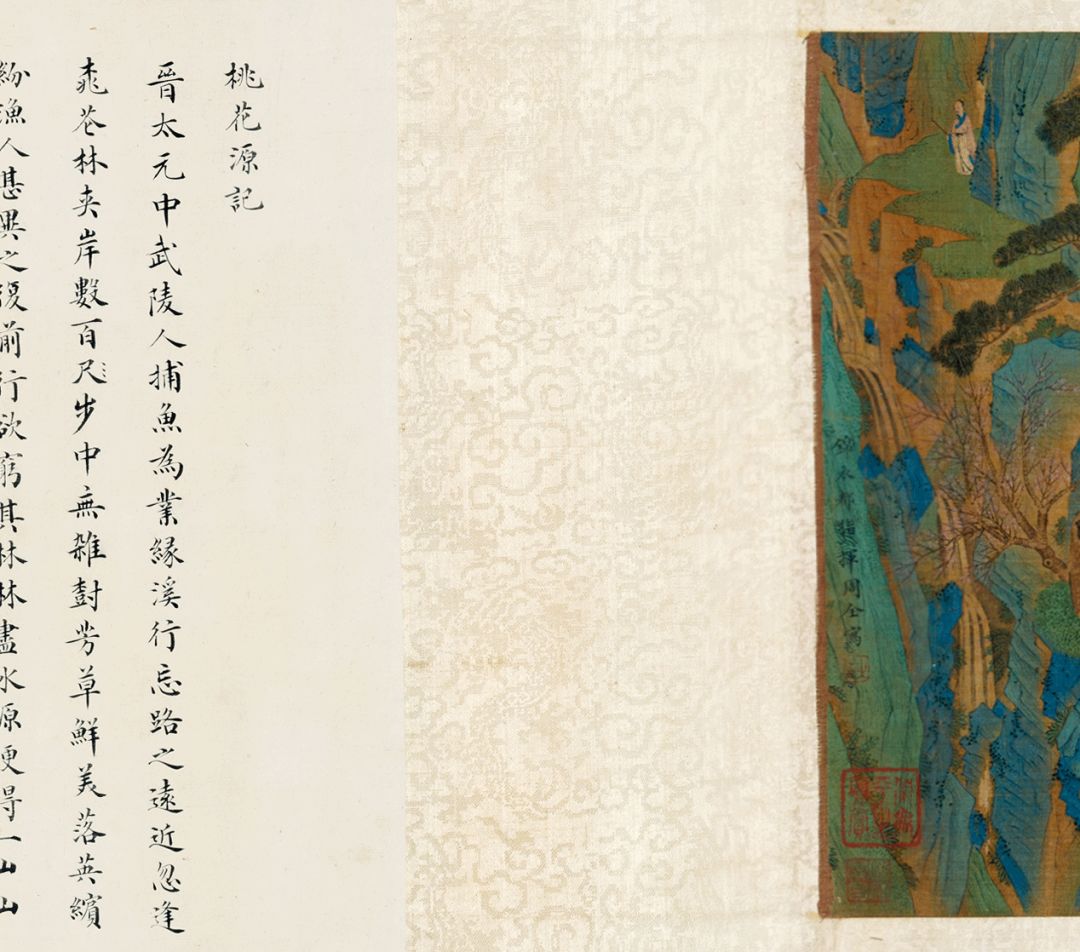 錦衣都指揮周全寫
桃花源記
晉太元中武陵人捕魚為業緣溪行忘路之遠近忽逢
桃花林夾岸數百尺步中無雜樹芳草鮮美落英繽
紛漁人甚異之復前行欲窮其林林盡水源便得一山山